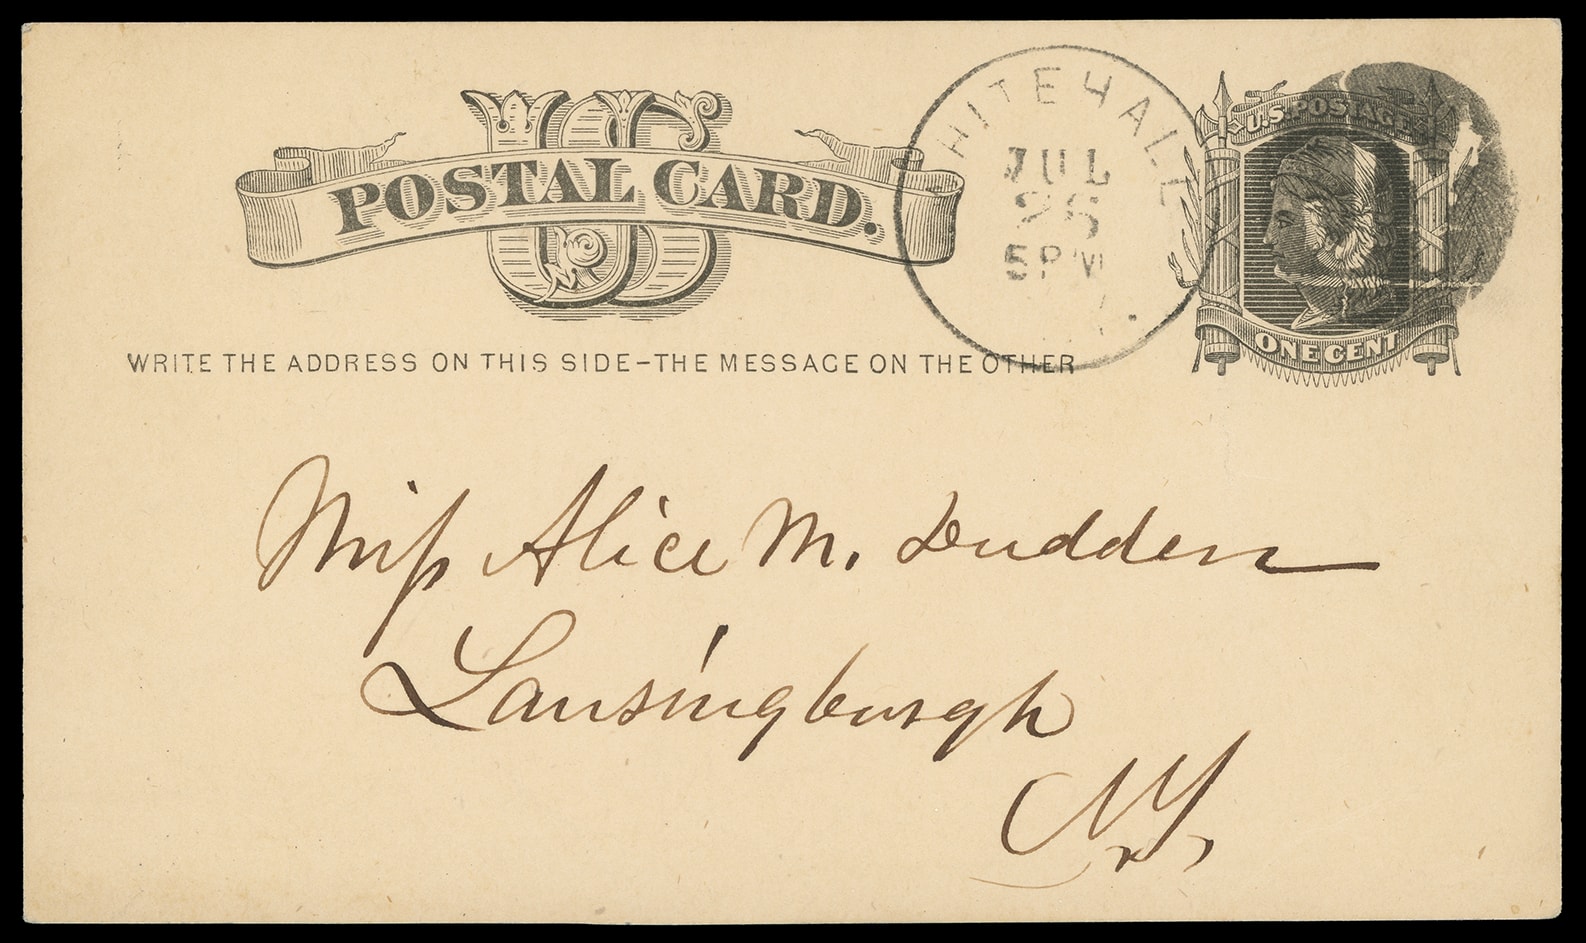 US
POSTAL CARD.
WHITEHALL
JUL
26
5PM
U.S. POSTAGE
ONE CENT
WRITE THE ADDRESS ON THIS SIDE-THE MESSAGE ON THE OTHER
Miss Alice M. Dudden
Lansingburgh
N.Y.